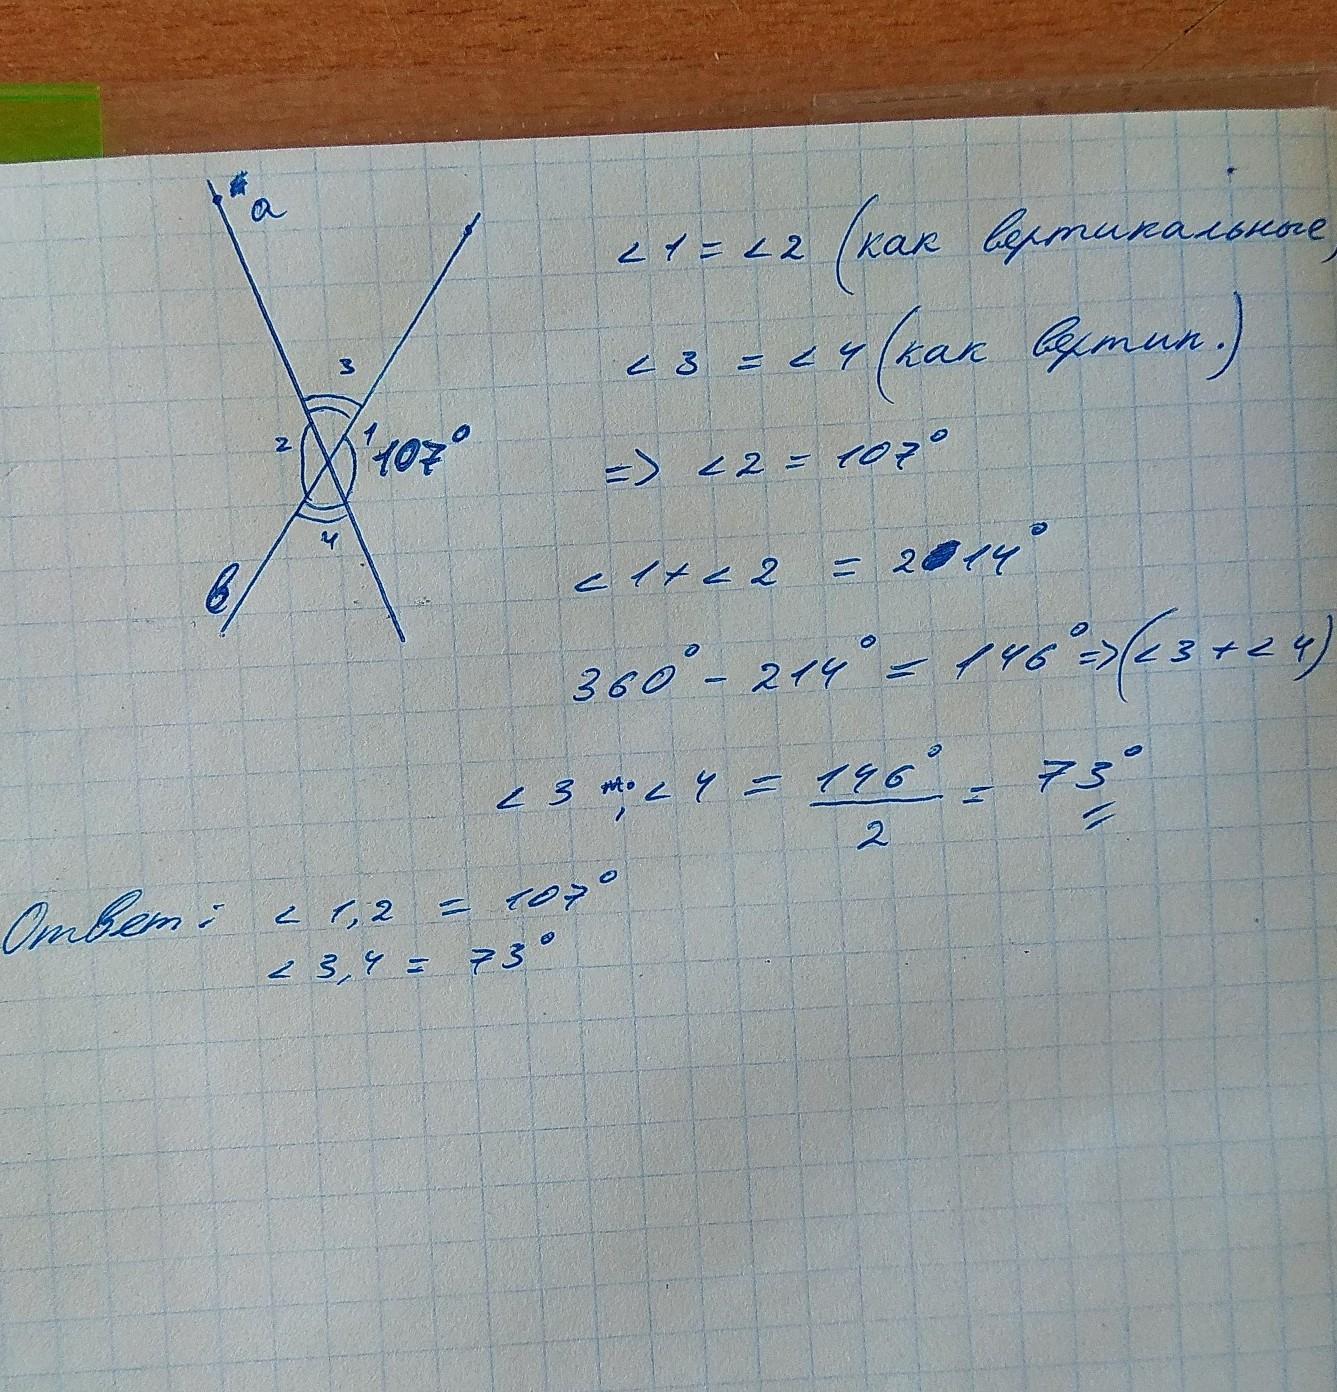 a
3
2
1
107°
4
в
∠1 = ∠2 (как вертикальные)
∠3 = ∠4 (как вертик.)
=> ∠2 = 107°
∠1 + ∠2 = 214°
360° - 214° = 146° => (∠3 + ∠4)
∠3 ; ∠4 = 146°/2 = 73°
Ответ: ∠1,2 = 107°
∠3,4 = 73°